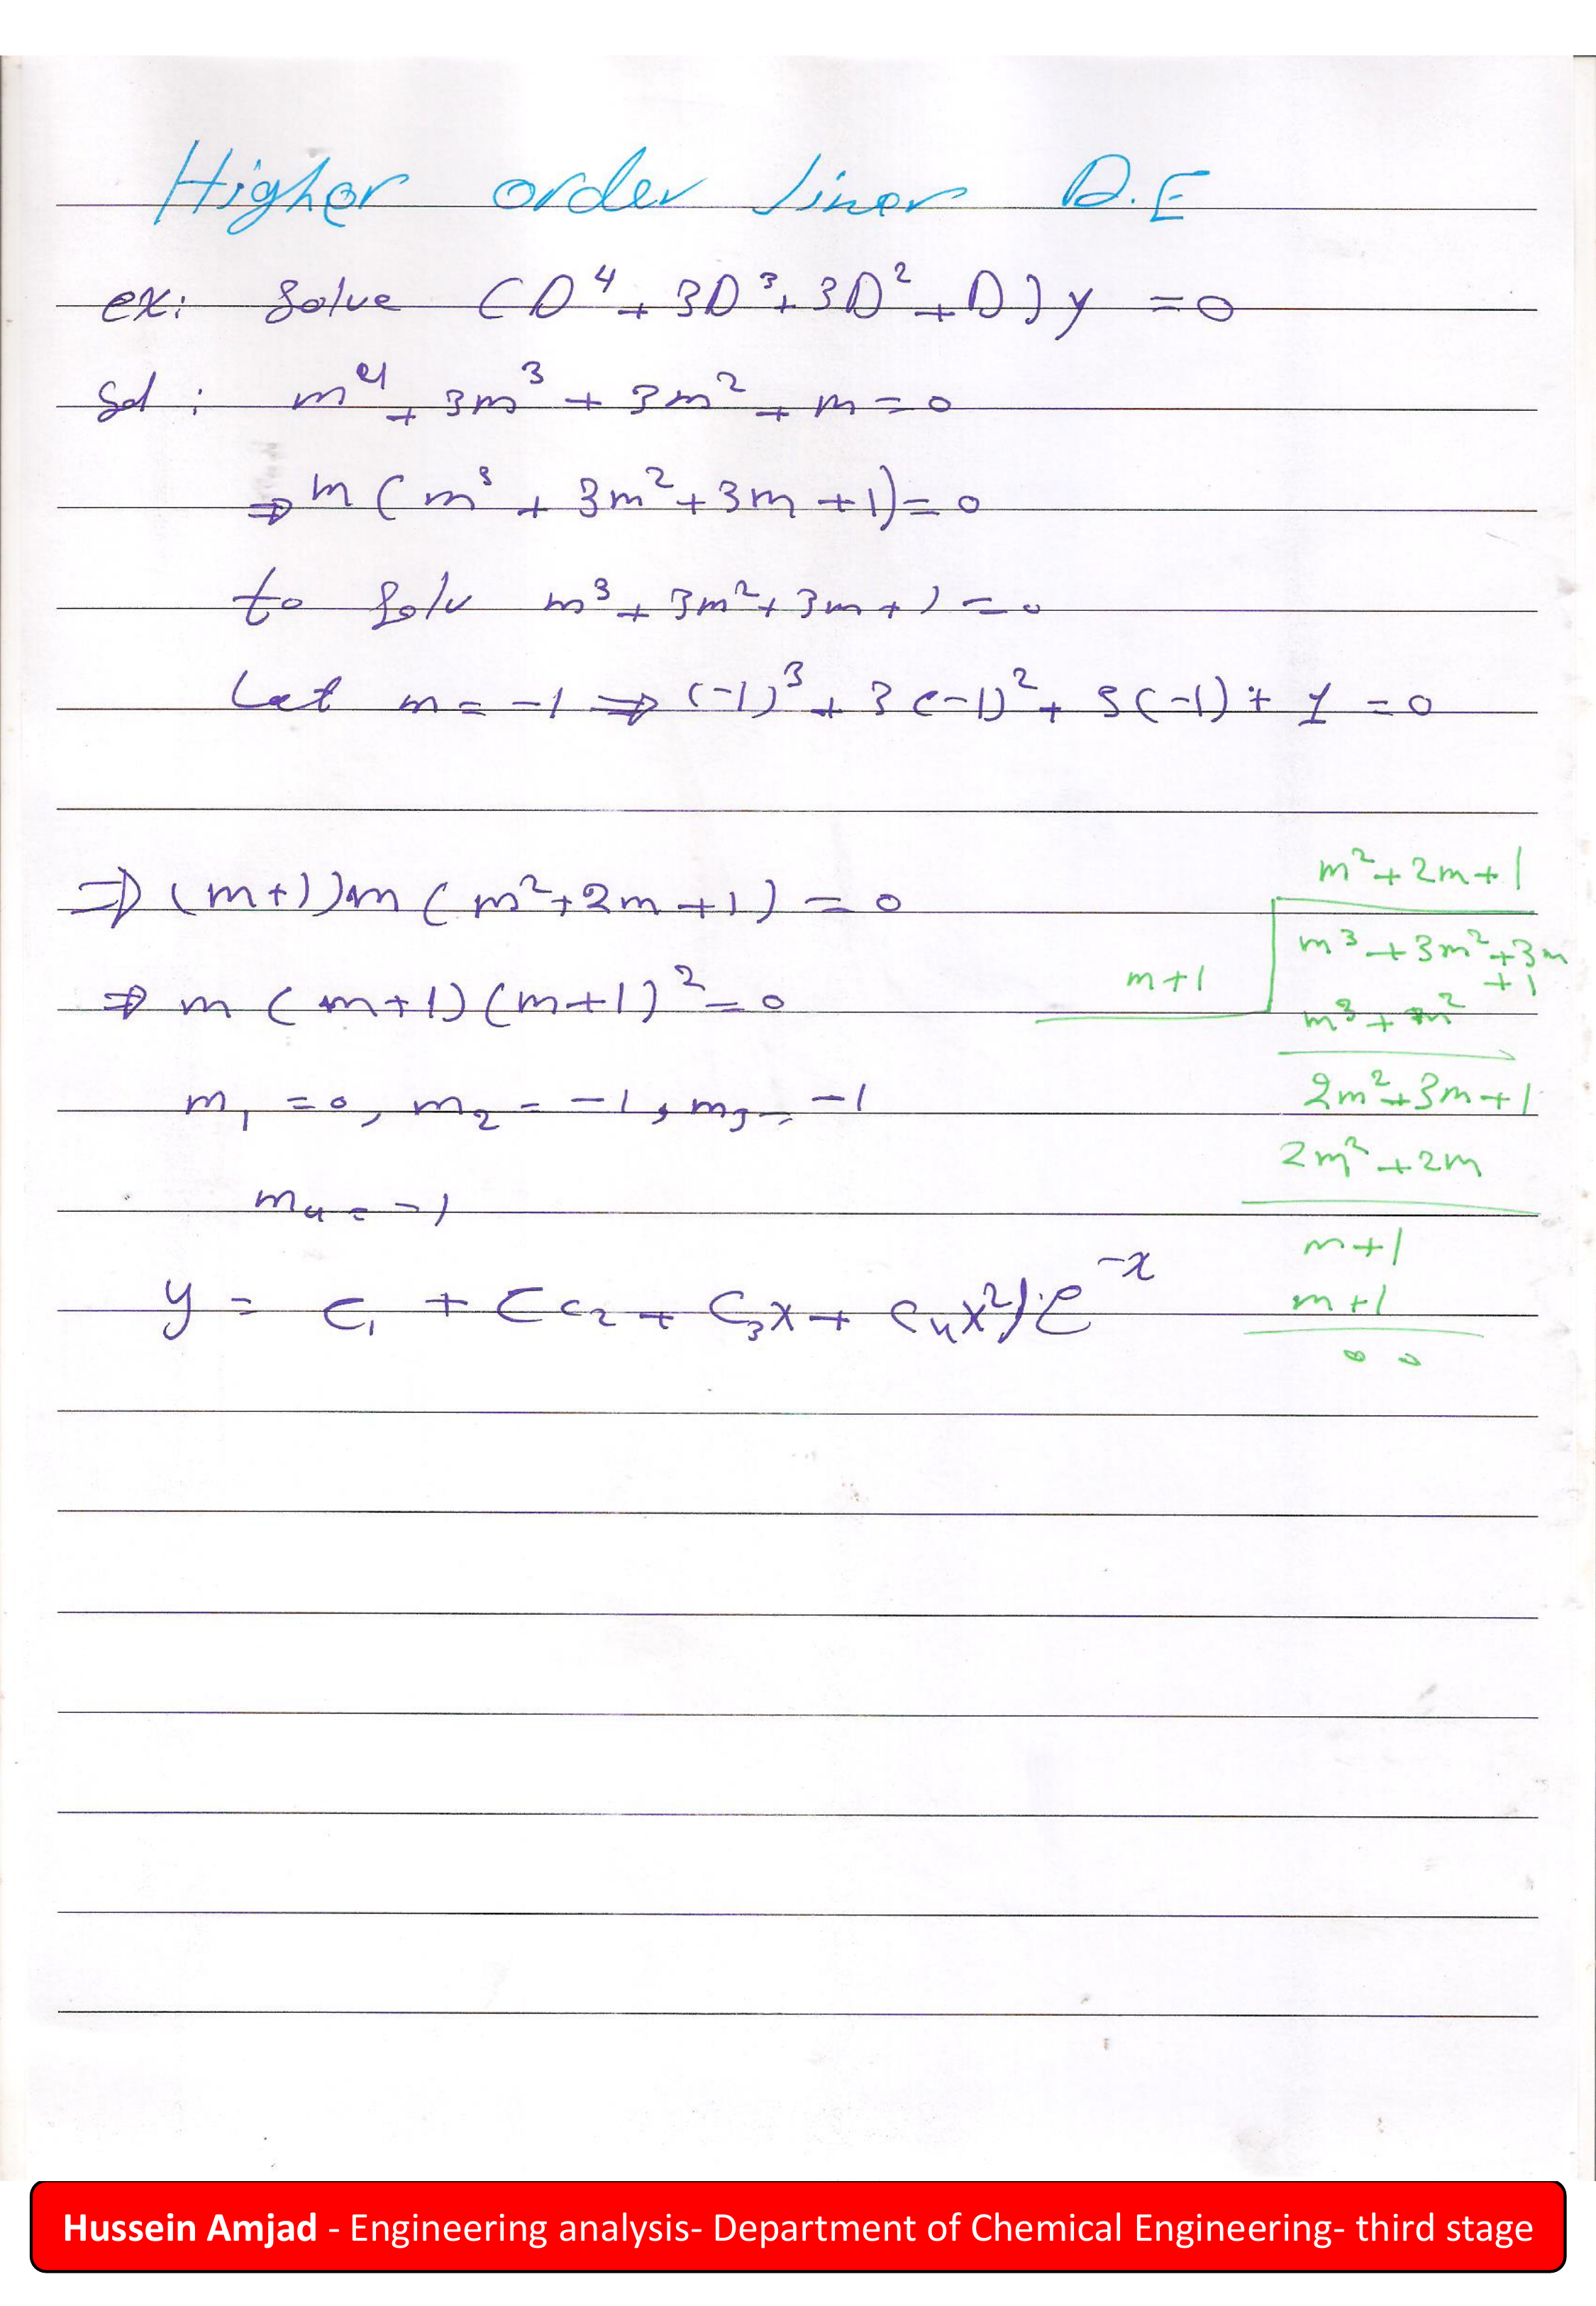 Higher order liner D.E
ex: Solve (D⁴ + 3D³ + 3D² + D) y = 0
Sol : m⁴ + 3m³ + 3m² + m = 0
⇒ m (m³ + 3m² + 3m + 1) = 0
to Solv m³ + 3m² + 3m + 1 = 0
Let m = -1 ⇒ (-1)³ + 3(-1)² + 3(-1) + 1 = 0
⇒ (m+1)m (m² + 2m + 1) = 0
⇒ m (m+1)(m+1)² = 0
m₁ = 0, m₂ = -1, m₃ = -1
m₄ = -1
y = C₁ + (C₂ + C₃x + C₄x²) e⁻ˣ
m² + 2m + 1
m+1
m³ + 3m² + 3m
+ 1
m³ + m²
2m² + 3m + 1
2m² + 2m
m + 1
m + 1
0 0
Hussein Amjad - Engineering analysis- Department of Chemical Engineering- third stage